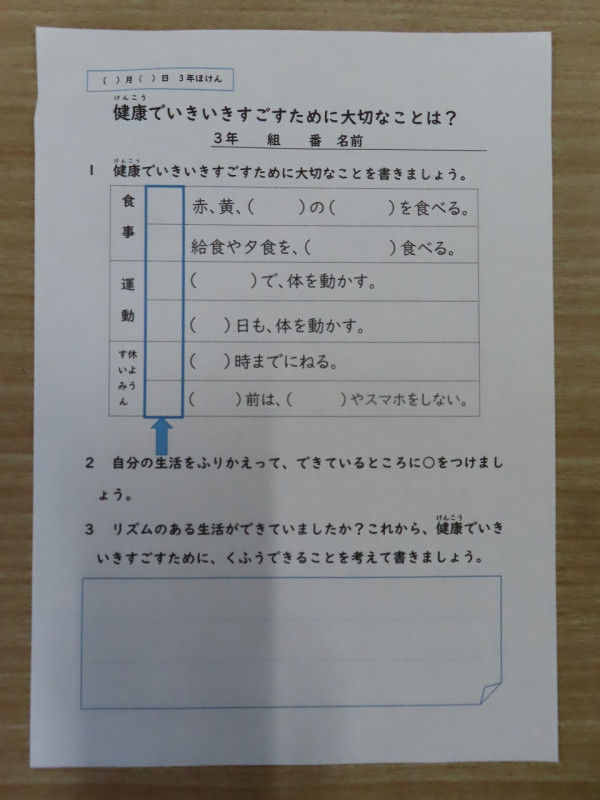 （　）月（　）日　３年ほけん
けんこう
健康でいきいきすごすために大切なことは？
３年　　組　　番　名前
けんこう
１　健康でいきいきすごすために大切なことを書きましょう。
食事
赤、黄、（　　　）の（　　　　）を食べる。
給食や夕食を、（　　　　　）食べる。
運動
（　　　）で、体を動かす。
（　　）日も、体を動かす。
休よう
すいみん
（　　）時までにねる。
（　　　）前は、（　　　　）やスマホをしない。
２　自分の生活をふりかえって、できているところに○をつけまし
ょう。
けんこう
３　リズムのある生活ができていましたか？これから、健康でいき
いきすごすために、くふうできることを考えて書きましょう。